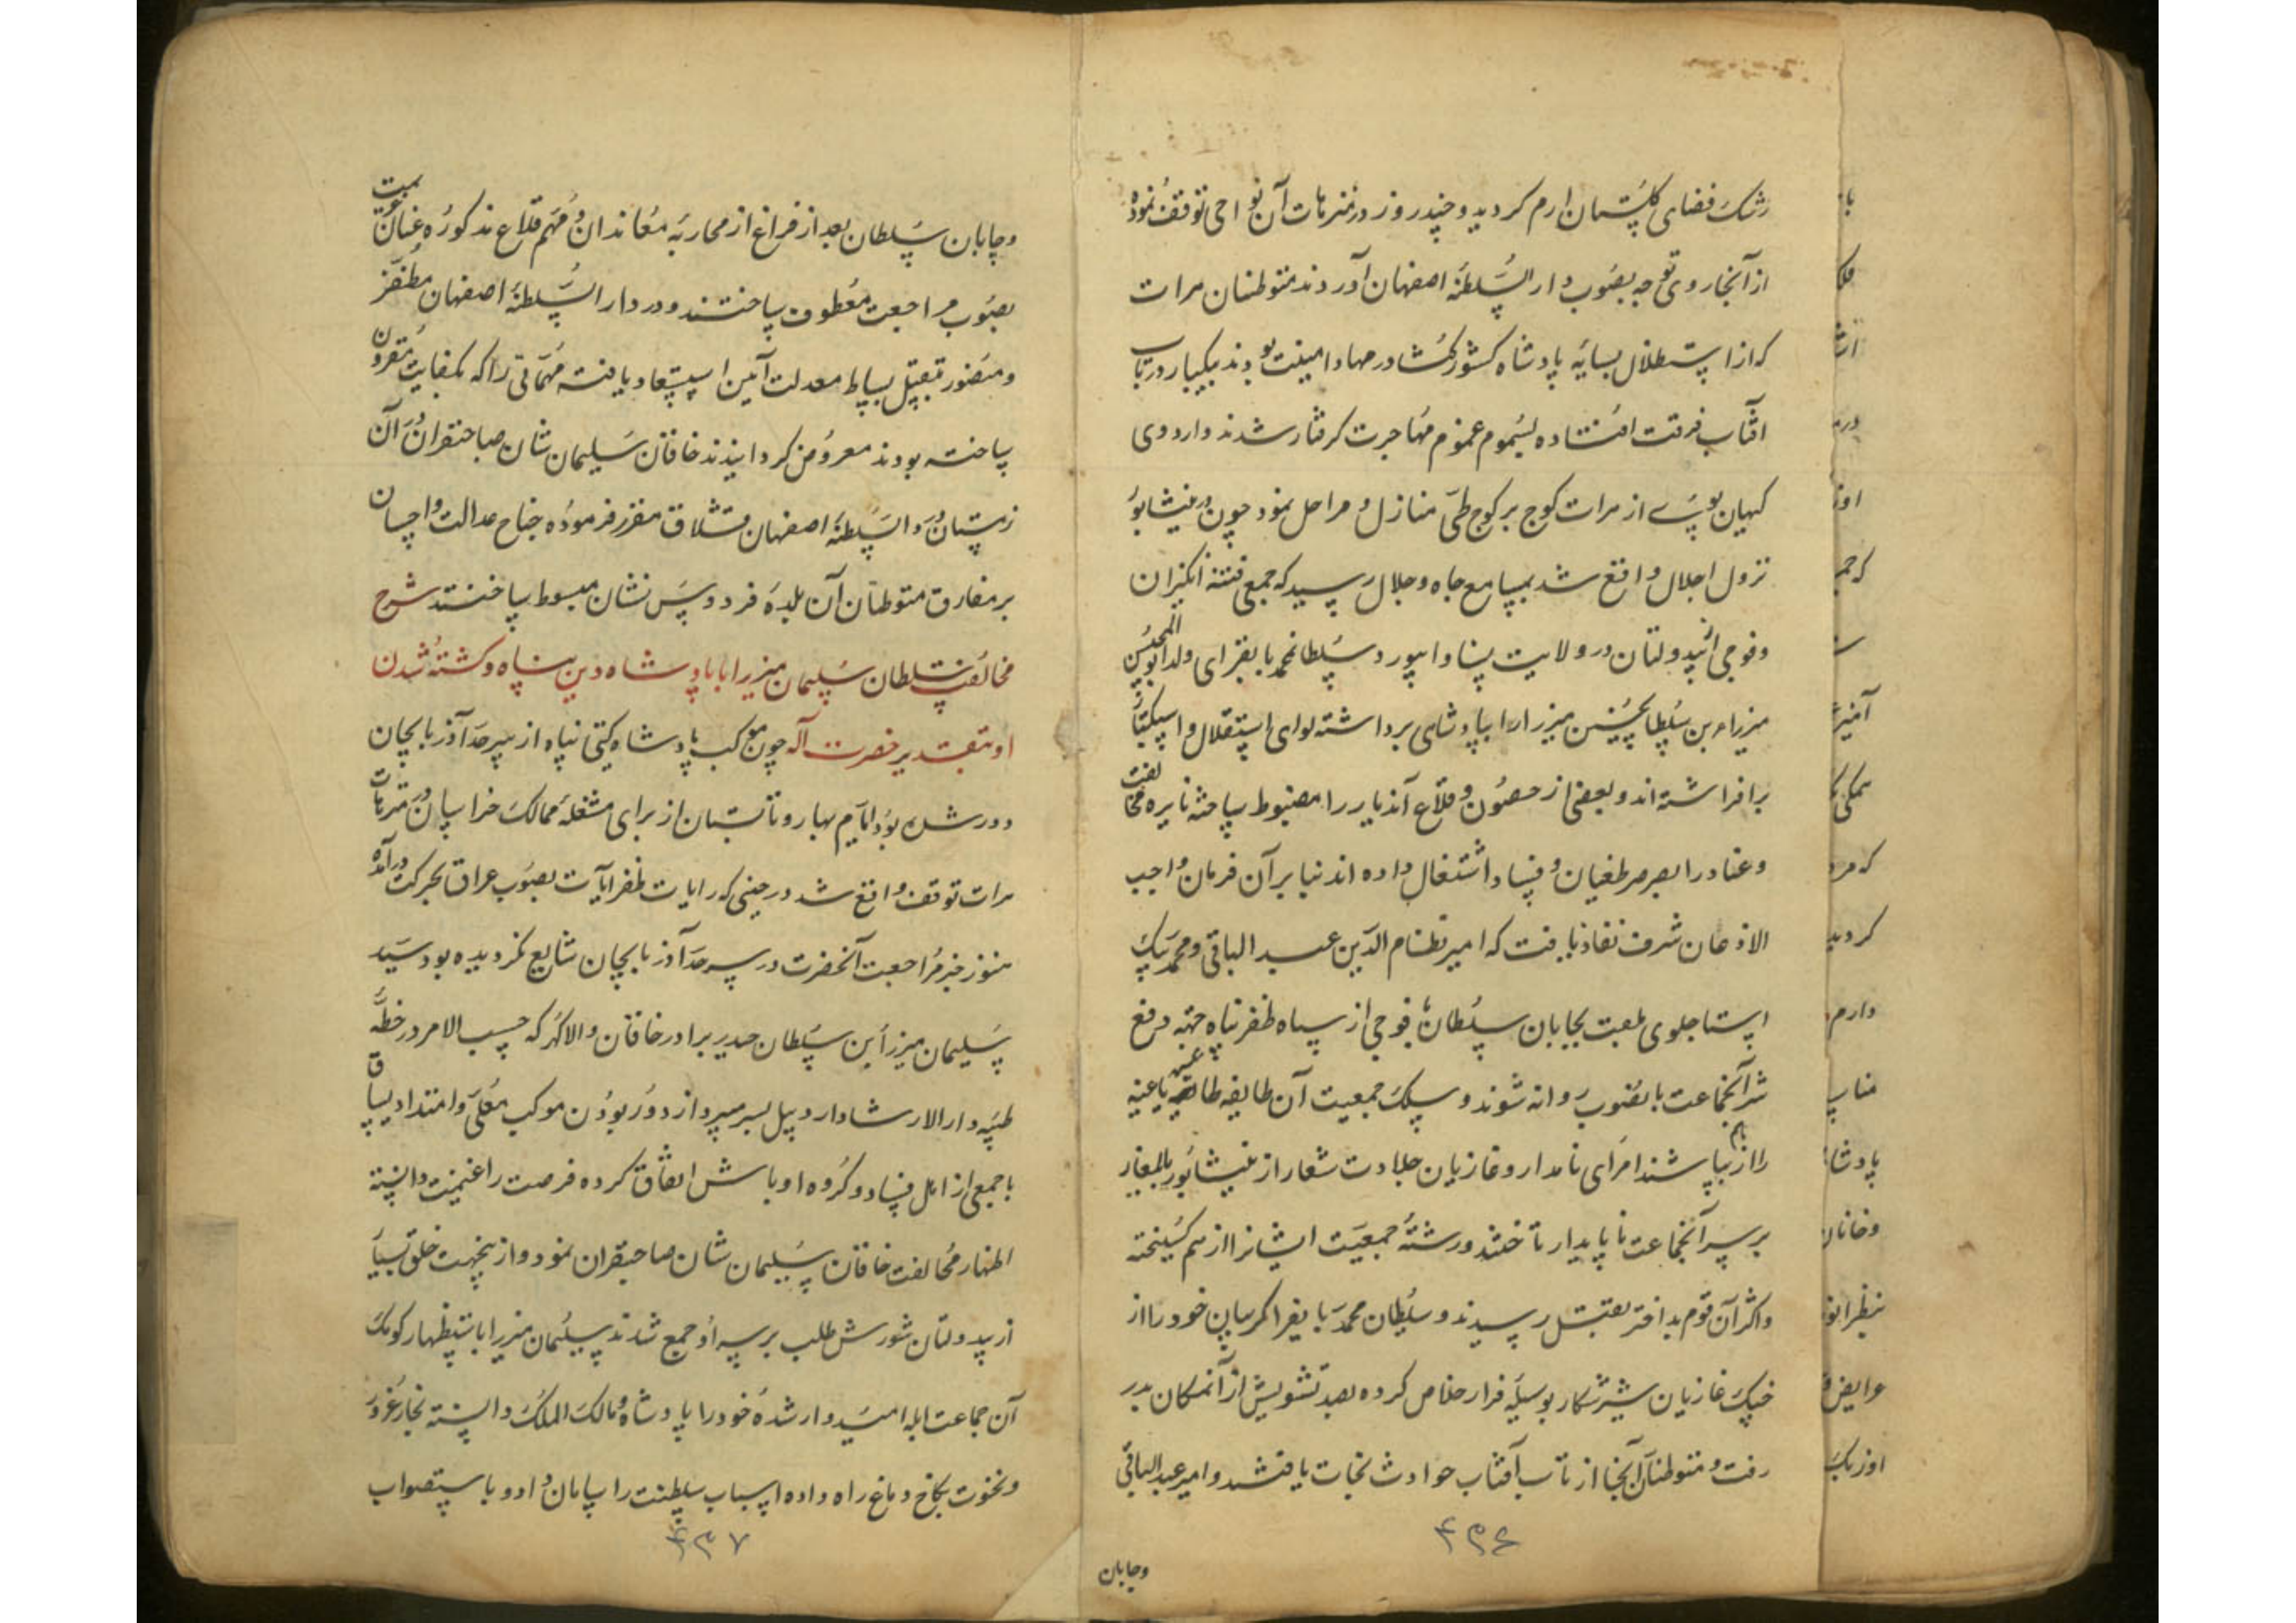 رشک فضای گلستان ارم گردید و چند روز در منزهات آن نواحی توقف نموده
از آنجا روی توجه بصوب دار السلطنه اصفهان آوردند متوطنان هرات
که از استظلال بسایه پادشاه کشورگشا در مهاد امنیت بودند بیکبار در تاب
افتاب فرقت افتاده بسموم غموم مهاجرت گرفتار شدند و اردوی
کیهان پوی از هرات کوچ بر کوچ طی منازل و مراحل نمود چون در نیشابور
نزول اجلال واقع شد بمسامع جاه و جلال رسید که جمعی فتنه انگیزان
و فوجی از بیدولتان در ولایت نسا و ابیورد سلطان محمد بایقرای ولد ابو المحسن
میرزاء بن سلطان حسین میرزا را بپادشاهی برداشته لوای استقلال و استکبار
برافراشته اند و بعضی از حصون و قلاع آندیار را مضبوط ساخته نایره مخالفت
و عناد را بصرصر طغیان و فساد اشتغال داده اند بنا بر آن فرمان واجب
الاذعان شرف نفاذ یافت که امیر نظام الدین عبد الباقی و محمد بیک
استاجلوی ملقب بچایان سلطان با فوجی از سپاه ظفر پناه جهة دفع
شر آنجماعت بانصوب روانه شوند و سلک جمعیت آن طایفه طاغیه یاغیه
را از هم بپاشند امرای نامدار و غازیان جلادت شعار از نیشابور بایلغار
بر سر آنجماعت ناپایدار تاختند و رشته جمعیت ایشانرا از هم گسیخته
و اکثر آن قوم بداختر بقتل رسیدند و سلطان محمد بایقرا گریبان خود را از
چنگ غازیان شیرشکار بوسیله فرار خلاص کرده بصد تشویش از آنمکان بدر
رفت و متوطنان آنجا از تاب آفتاب حوادث نجات یافتند و امیر عبد الباقی
۴۳۶
وچایان
و چایان سلطان بعد از فراغ از محاربه معاندان و مهم قلاع مذکوره عنان عزیمت
بصوب مراجعت معطوف ساختند و در دار السلطنه اصفهان مظفر
و منصور بتقبیل بساط معدلت آیین استسعاد یافته مهماتی را که بکفایت مقرون
ساخته بودند معروض گردانیدند خاقان سلیمان شان صاحبقران در آن
زمستان در دار السلطنه اصفهان قشلاق مقرر فرموده جناح عدالت و احسان
بر مفارق متوطنان آن بلده فردوس نشان مبسوط ساختند شرح
مخالفت سلطان سلیمان میرزا با پادشاه دین پناه و کشته شدن
او بتقدیر حضرت آله چون موکب پادشاه گیتی پناه از سرحد آذربایجان
دور شده بود ایام بهار و تابستان از برای مشغله ممالک خراسان در منزهات
هرات توقف واقع شد در حینی که رایات ظفر آیات بصوب عراق بحرکت درآمده
هنوز خبر مراجعت آنحضرت در سرحد آذربایجان شایع نگردیده بود سید
سلیمان میرزا بن سلطان حیدر برادر خاقان والاگهر که حسب الامر در خطه
طیبه دار الارشاد اردبیل بسر میبرد از دور بودن موکب معلی و امتداد یساق
با جمعی از اهل فساد و گروه اوباش اتفاق کرده فرصت را غنیمت دانسته
اظهار مخالفت خاقان سلیمان شان صاحبقران نمود و از ینجهت خلق بسیار
از بیدولتان شورش طلب بر سر او جمع شدند سلیمان میرزا باستظهار کومک
آن جماعت ابله امیدوار شده خود را پادشاه و مالک الملک دانسته بخار غرور
و نخوت بکاخ دماغ راه داده اسباب سلطنت را سامان داد و باستصواب
۴۳۷